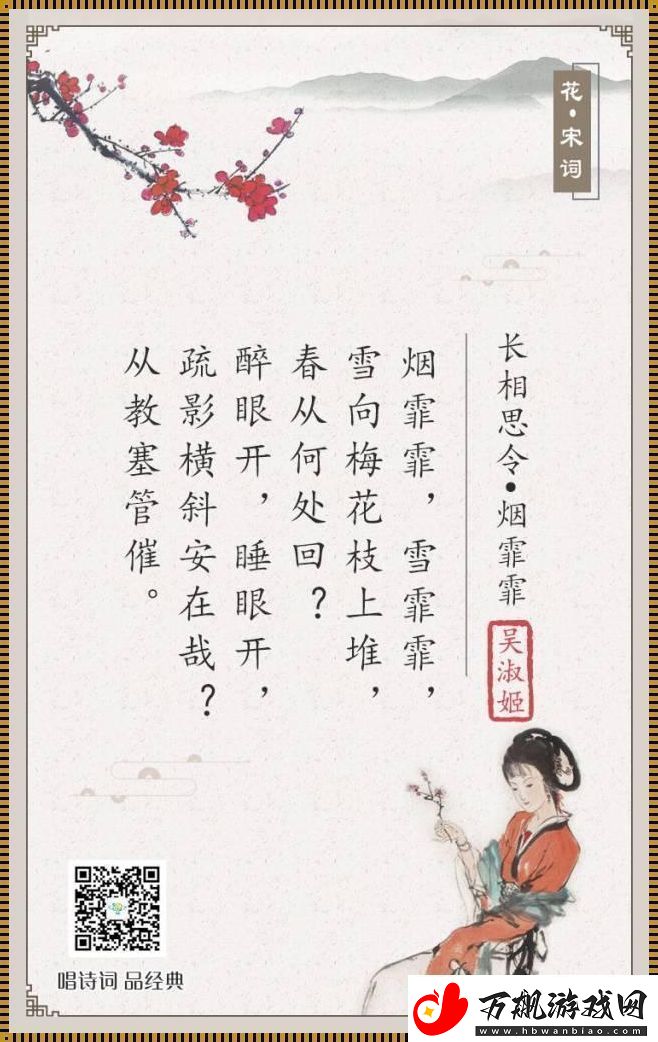 花·宋词
长相思令·烟霏霏
吴淑姬
烟霏霏，雪霏霏，
雪向梅花枝上堆，
春从何处回？
醉眼开，睡眼开，
疏影横斜安在哉？
从教塞管催。
唱诗词 品经典
万飙游戏网
www.hbwanbiao.com